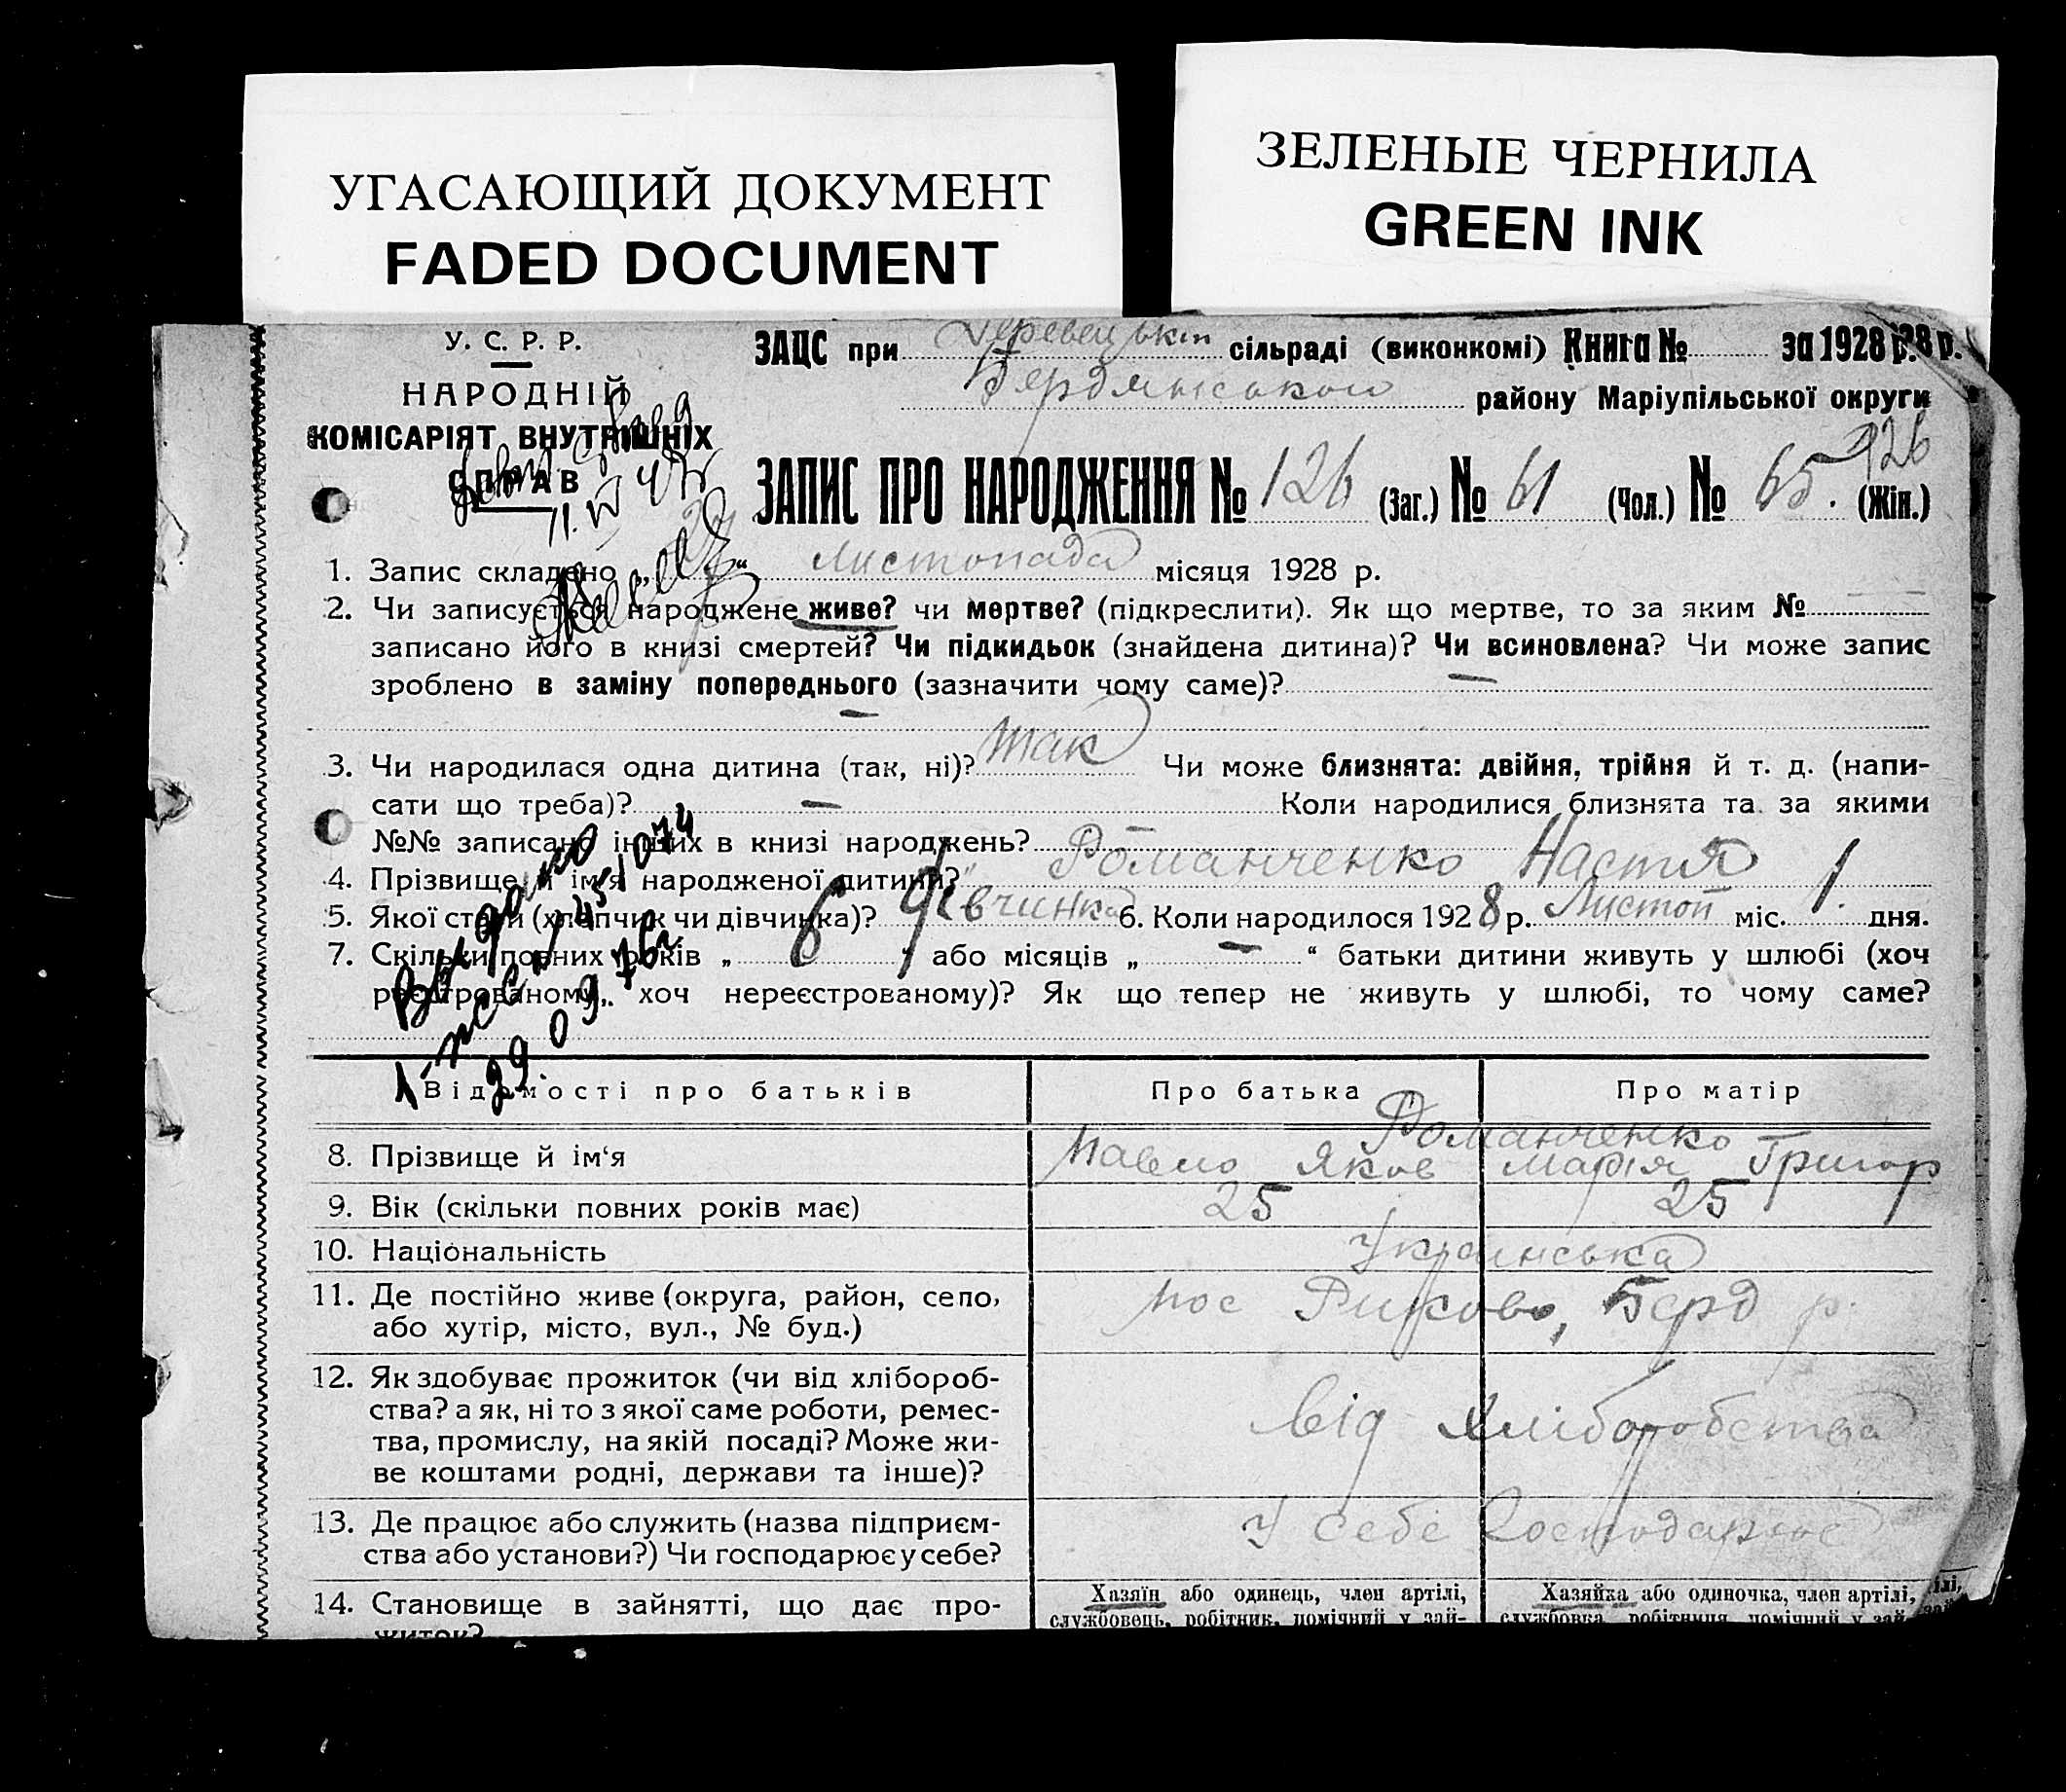 УГАСАЮЩИЙ ДОКУМЕНТ
FADED DOCUMENT
ЗЕЛЕНЫЕ ЧЕРНИЛА
GREEN INK
У. С. Р. Р.
НАРОДНІЙ
КОМІСАРІЯТ ВНУТРІШНІХ
СПРАВ
ЗАЦС при сільраді (виконкомі) Книга № за 1928 р.
Бердянського району Маріупільської округи
126
ЗАПИС ПРО НАРОДЖЕННЯ № 126 (Заг.) № 61 (Чол.) № 65. (Жін.)
1. Запис складено „ “ листопада місяця 1928 р.
2. Чи записується народжене живе? чи мертве? (підкреслити). Як що мертве, то за яким №
записано його в книзі смертей? Чи підкидьок (знайдена дитина)? Чи всиновлена? Чи може запис
зроблено в заміну попереднього (зазначити чому саме)? —
—
3. Чи народилася одна дитина (так, ні)? так Чи може близнята: двійня, трійня й т. д. (напи-
сати що треба)? — Коли народилися близнята та за якими
№№ записано інших в книзі народжень? —
4. Прізвище й ім'я народженої дитини? Романченко Настя
5. Якої стати (хлопчик чи дівчинка)? дівчинка 6. Коли народилося 1928 р. Листоп міс. 1. дня.
7. Скільки повних років „ 6 “ або місяців „ — “ батьки дитини живуть у шлюбі (хоч
реєстрованому, хоч нереєстрованому)? Як що тепер не живуть у шлюбі, то чому саме?
Выдано
29.09.76г
Відомості про батьків Про батька Про матір
Романченко
8. Прізвище й ім‘я Павло Яков Марія Григор
9. Вік (скільки повних років має) 25 25
10. Національність Українська
11. Де постійно живе (округа, район, село,
або хутір, місто, вул., № буд.)
пос Риково, Берд р.
12. Як здобуває прожиток (чи від хлібороб-
ства? а як, ні то з якої саме роботи, ремес-
тва, промислу, на якій посаді? Може жи-
ве коштами родні, держави та інше)?
від хліборобства
13. Де працює або служить (назва підприєм-
ства або установи?) Чи господарює у себе?
У себе господарює
14. Становище в зайнятті, що дає про-
житок?
Хазяїн або одинець, член артілі,
службовець, робітник, помічний у зай-
Хазяйка або одиночка, член артілі,
службовка, робітниця, помічний у зай-